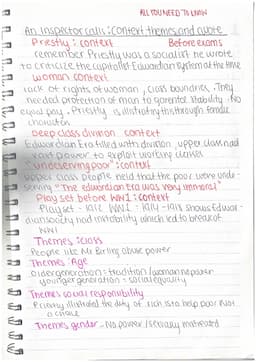 ALL YOU NEED TO KNOW
An inspector calls: Context themes and quote
Priestly: context Before exams
remember Priestly was a socialist he wrote
to criticize the capitalist Edwardian system at the time
woman context
lack of rights of woman, class boundries. They
needed protection of man to garentee stability. No
equal pay. Priestly is illistrating this through female
character
Deep class divison context
Edwardian Era filled with division, upper class had
vast power to exploit working classes
"undeserving poor": context
upper class people held that the poor were unde-
serving "The edwardian era was very immoral"
Play set before WW1: context
Play set - 1912 WW1 - 1914 - 1918 shows Edwar-
dian society had instability which led to break of
WW1
Themes: class
People like Mr Birling abuse power
Themes: Age
older generation: tradition / woman no power
younger generation - social equality
Themes social responsibility
Priestly illistrated the duty of rich is to help poor Not
a choice
Themes gender - No power / sexually mistreated